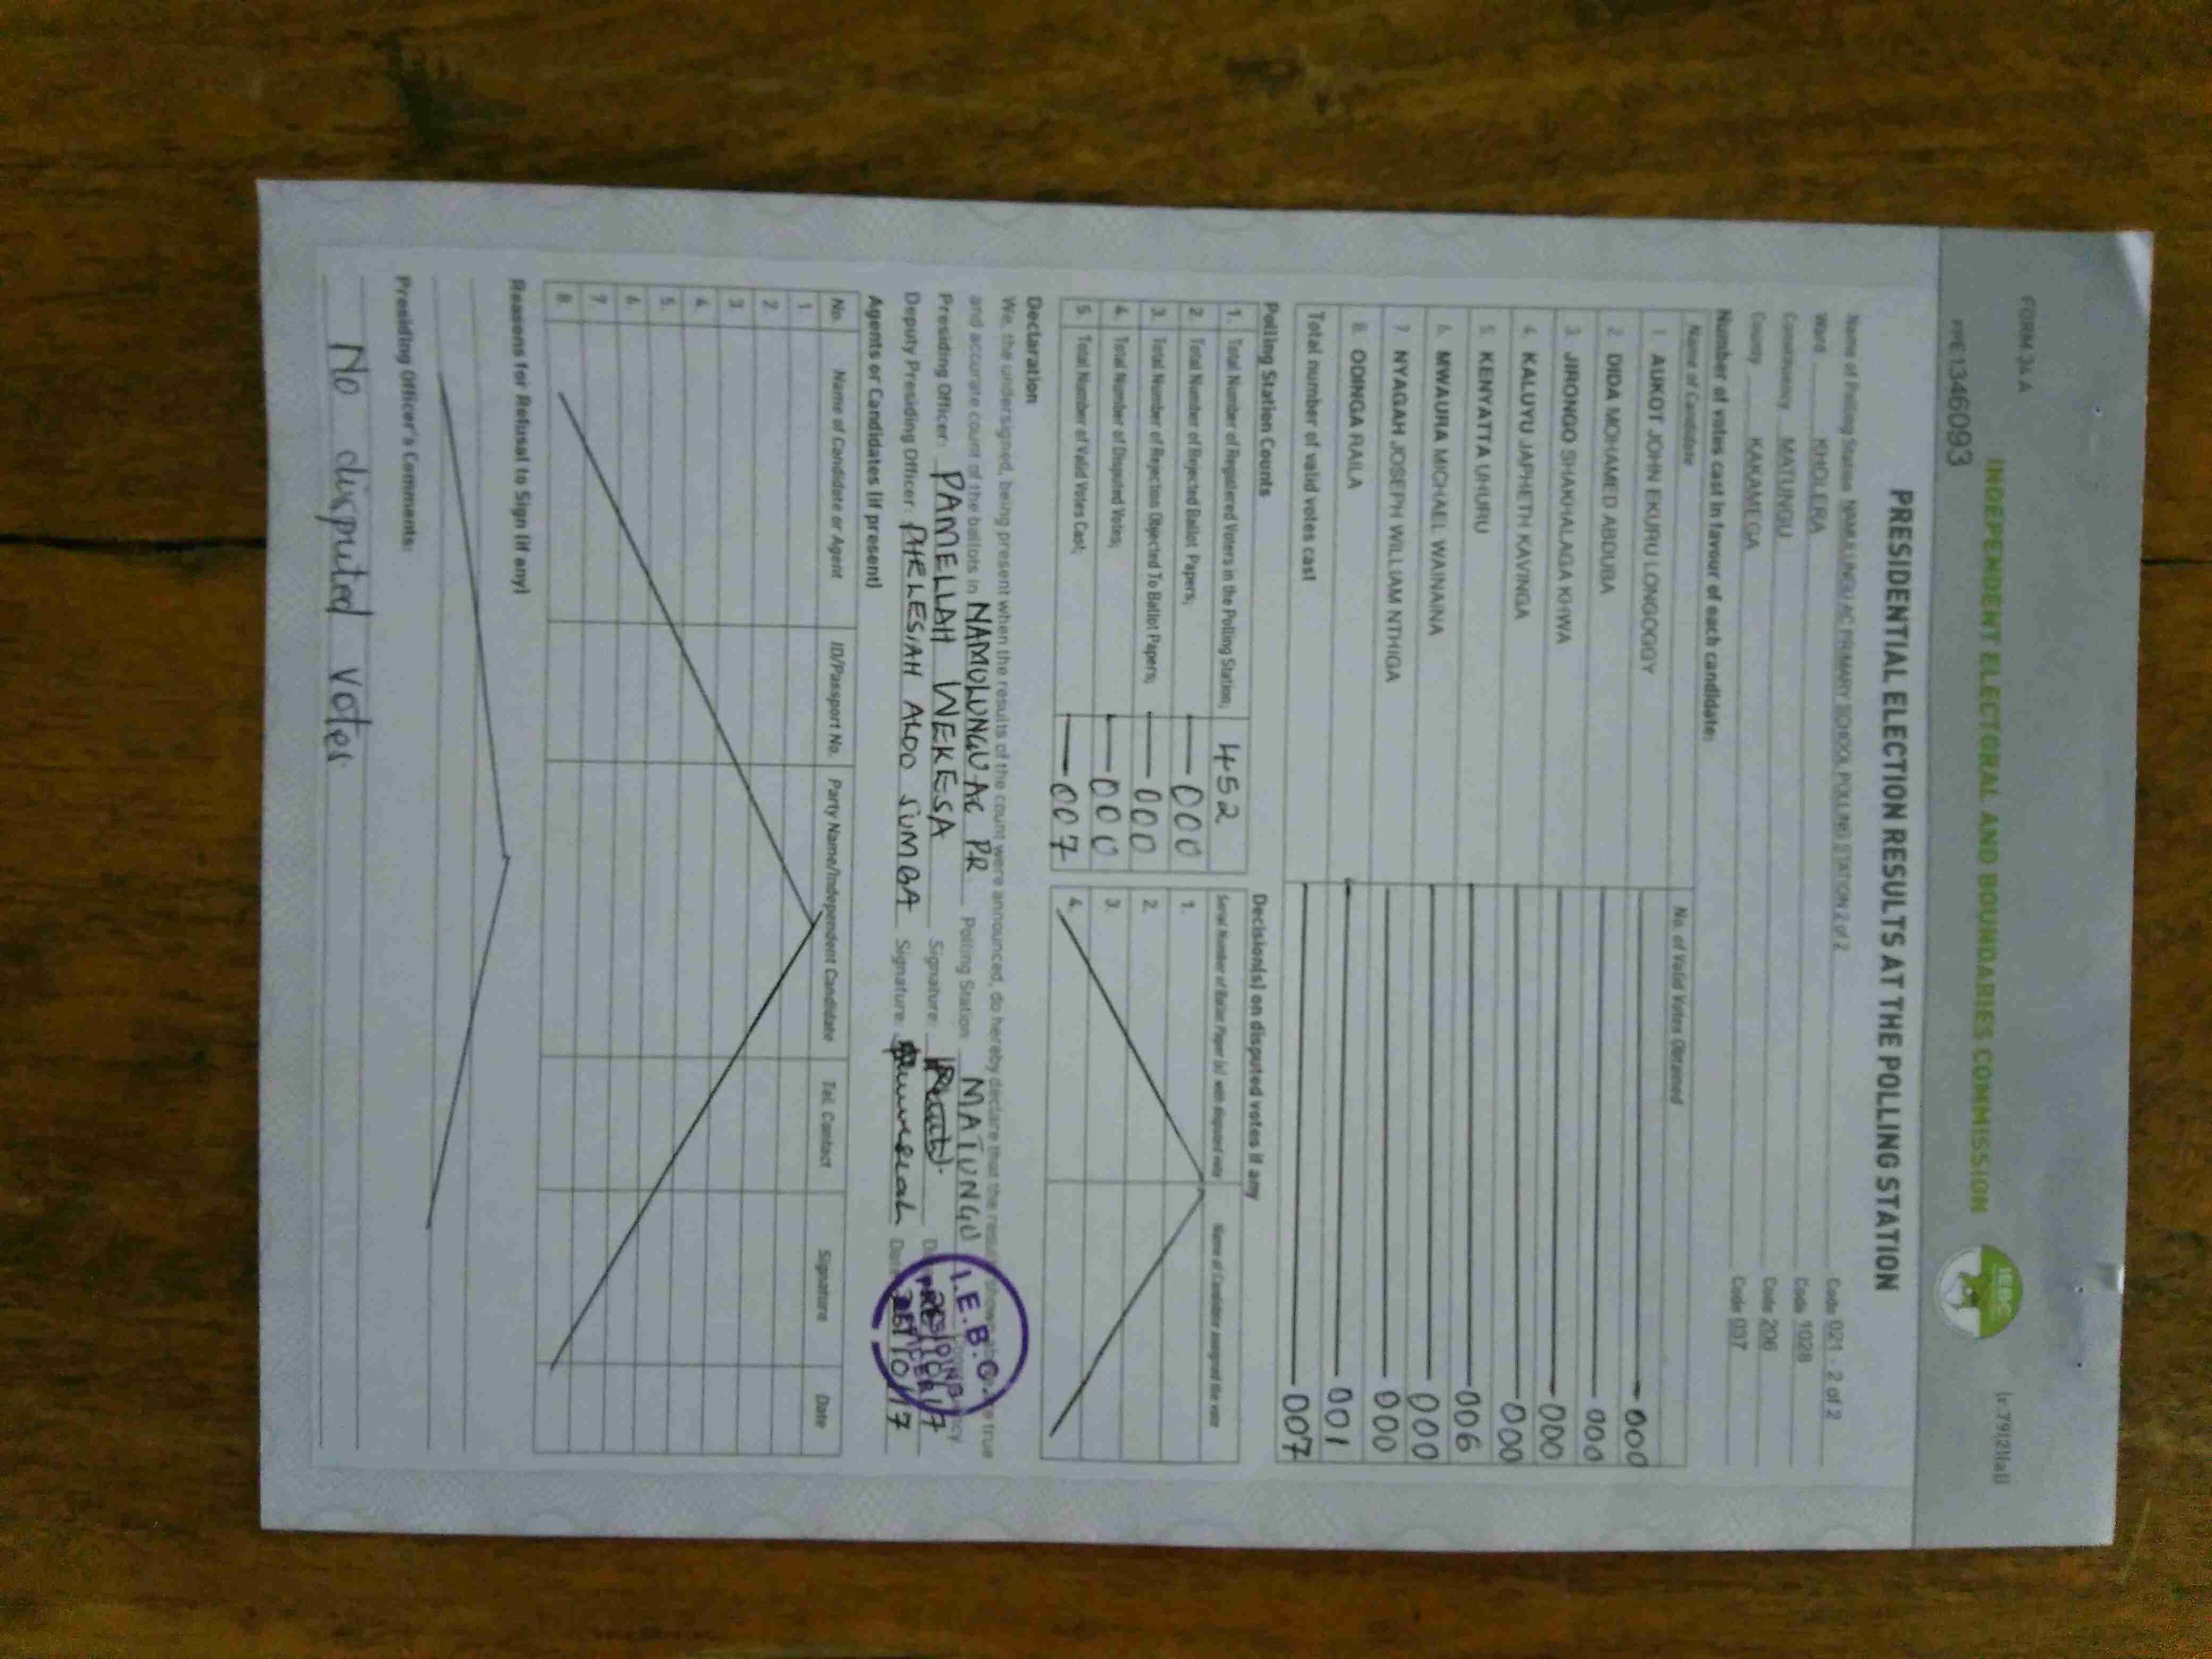 FORM 34 A
(r.79(2)(a))
INDEPENDENT ELECTORAL AND BOUNDARIES COMMISSION
IEBC
PPE 1346093
PRESIDENTIAL ELECTION RESULTS AT THE POLLING STATION
Name of Polling Station NAMULUNGU AC PRIMARY SCHOOL POLLING STATION 2 of 2 Code 021 - 2 of 2
Ward KHOLERA Code 1028
Constituency MATUNGU Code 206
County KAKAMEGA Code 037
Number of votes cast in favour of each candidate:
Name of Candidate No. of Valid Votes Obtained
1. AUKOT JOHN EKURU LONGOGGY 000
2. DIDA MOHAMED ABDUBA 000
3. JIRONGO SHAKHALAGA KHWA 000
4. KALUYU JAPHETH KAVINGA 000
5. KENYATTA UHURU 006
6. MWAURA MICHAEL WAINAINA 000
7. NYAGAH JOSEPH WILLIAM NTHIGA 000
8. ODINGA RAILA 001
Total number of valid votes cast 007
Polling Station Counts
1. Total Number of Registered Voters in the Polling Station; 452
2. Total Number of Rejected Ballot Papers; 000
3. Total Number of Rejection Objected To Ballot Papers; 000
4. Total Number of Disputed Votes; 000
5. Total Number of Valid Votes Cast; 007
Decision(s) on disputed votes if any
Serial Number of Ballot Paper (s) with disputed vote Name of Candidate assigned the vote
1.
2.
3.
4.
Declaration
We, the undersigned, being present when the results of the count were announced, do hereby declare that the results shown above are true
and accurate count of the ballots in NAMULUNGU AC PR Polling Station MATUNGU
Presiding Officer: PAMELLAH WEKESA Signature: 26/10/17
Deputy Presiding Officer: Signature: Date 26/10/17
I.E.B.C.
PRESIDING
OFFICER
Agents or Candidates (if present)
No. Name of Candidate or Agent ID/Passport No. Party Name/Independent Candidate Tel. Contact Signature Date
1
2
3.
4.
5.
6.
7.
8.
Reasons for Refusal to Sign (if any)
Presiding Officer's Comments:
No disputed votes